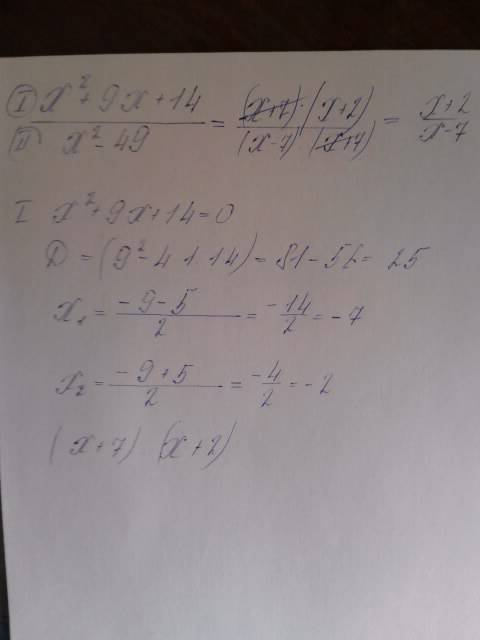 I x²+9x+14 / II x²-49 = (x+7)·(x+2) / (x-7)(x+7) = x+2 / x-7
I x²+9x+14=0
D = (9²-4·1·14) = 81-56 = 25
x₁ = -9-5 / 2 = -14 / 2 = -7
x₂ = -9+5 / 2 = -4 / 2 = -2
(x+7) (x+2)